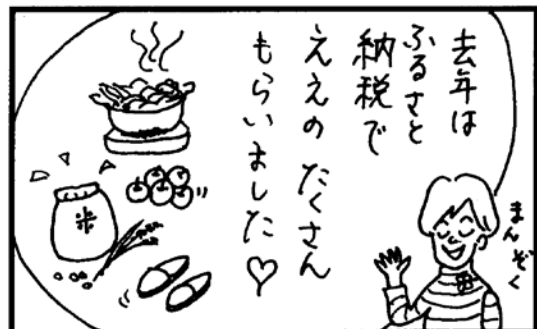 去年は
ふるさと
納税で
ええの たくさん
もらいました♡
まんぞく
米